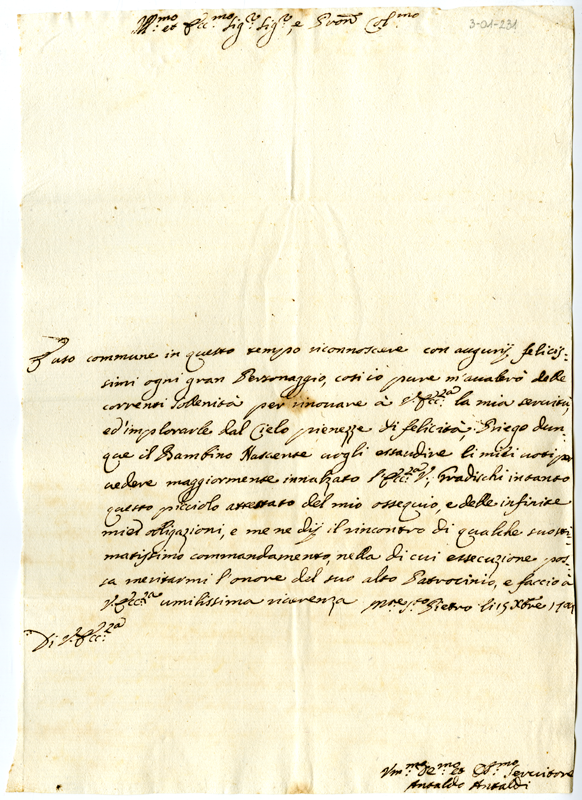 Ill:mo et Ecc:mo Sig:re Sig:re, e Pron Col:mo
3-01-231
È uso commune in questo tempo riconnoscere con augurij felicis-
simi ogni gran Personaggio, così io pure m'avalerò delle
correnti sollenità per rinovare à V: Ecc:za la mia servitù,
ed'implorarle dal Cielo pienezze di felicità, Priego dun-
que il Bambino Nascente vogli essaudire li miei voti per
vedere maggiormente innalzato l'Ecc:za V:, Gradischi intanto
questo picciolo attestato del mio ossequio, e delle infinite
miei obligazioni, e me ne dij il rincontro di qualche suo sti-
matissimo commandamento, nella di cui essecuzione pos-
sa meritarmi l'onore del suo alto Patrocinio, e faccio à
V: Ecc:za umilissima riverenza Mte S:to Pietro li 15 Xbre
Di V: Ecc:za
Um:mo De:mo et Ob:mo Servitore
Antaldo Antaldi